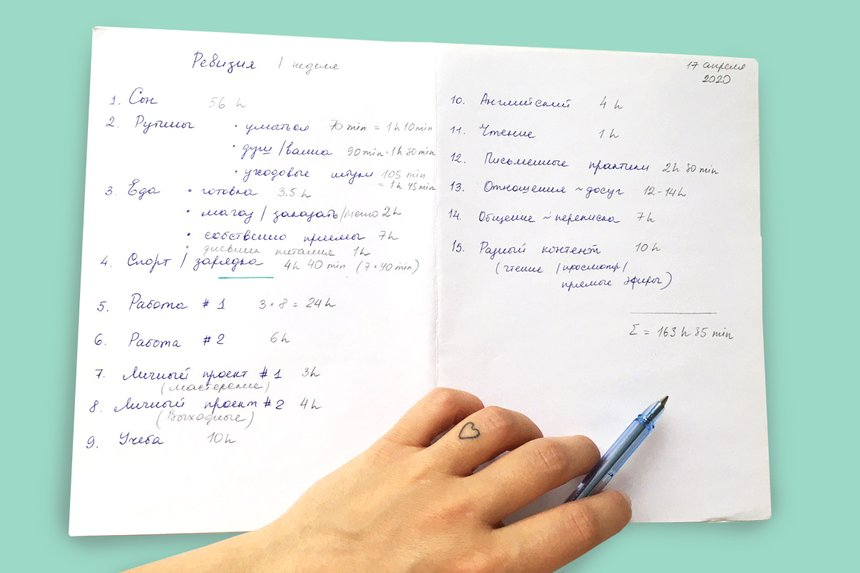 Ревизия 1 неделя
1. Сон 56 h
2. Рутины • умыться 70 min = 1 h 10 min
• душ/ванна 90 min = 1 h 30 min
• уходовые штуки 105 min
= 1 h 45 min
3. Еда • готовка 3.5 h
• магаз/заказать/меню 2h
• собственно приемы 7h
• дневник питания 1h
4. Спорт / зарядка 4h 40 min (7 • 40 min)
5. Работа # 1 3 • 8 = 24h
6. Работа # 2 6h
7. Личный проект # 1 3h
8. Личный проект # 2 4h
(Выходные)
9. Учеба 10h
17 апреля
2020
10. Английский 4 h
11. Чтение 1 h
12. Письменные практики 2h 30 min
13. Отношения ~ досуг 12-14h
14. Общение ~ переписка 7h
15. Разный контент 10 h
(чтение / просмотр /
прямые эфиры)
Σ = 163 h 35 min